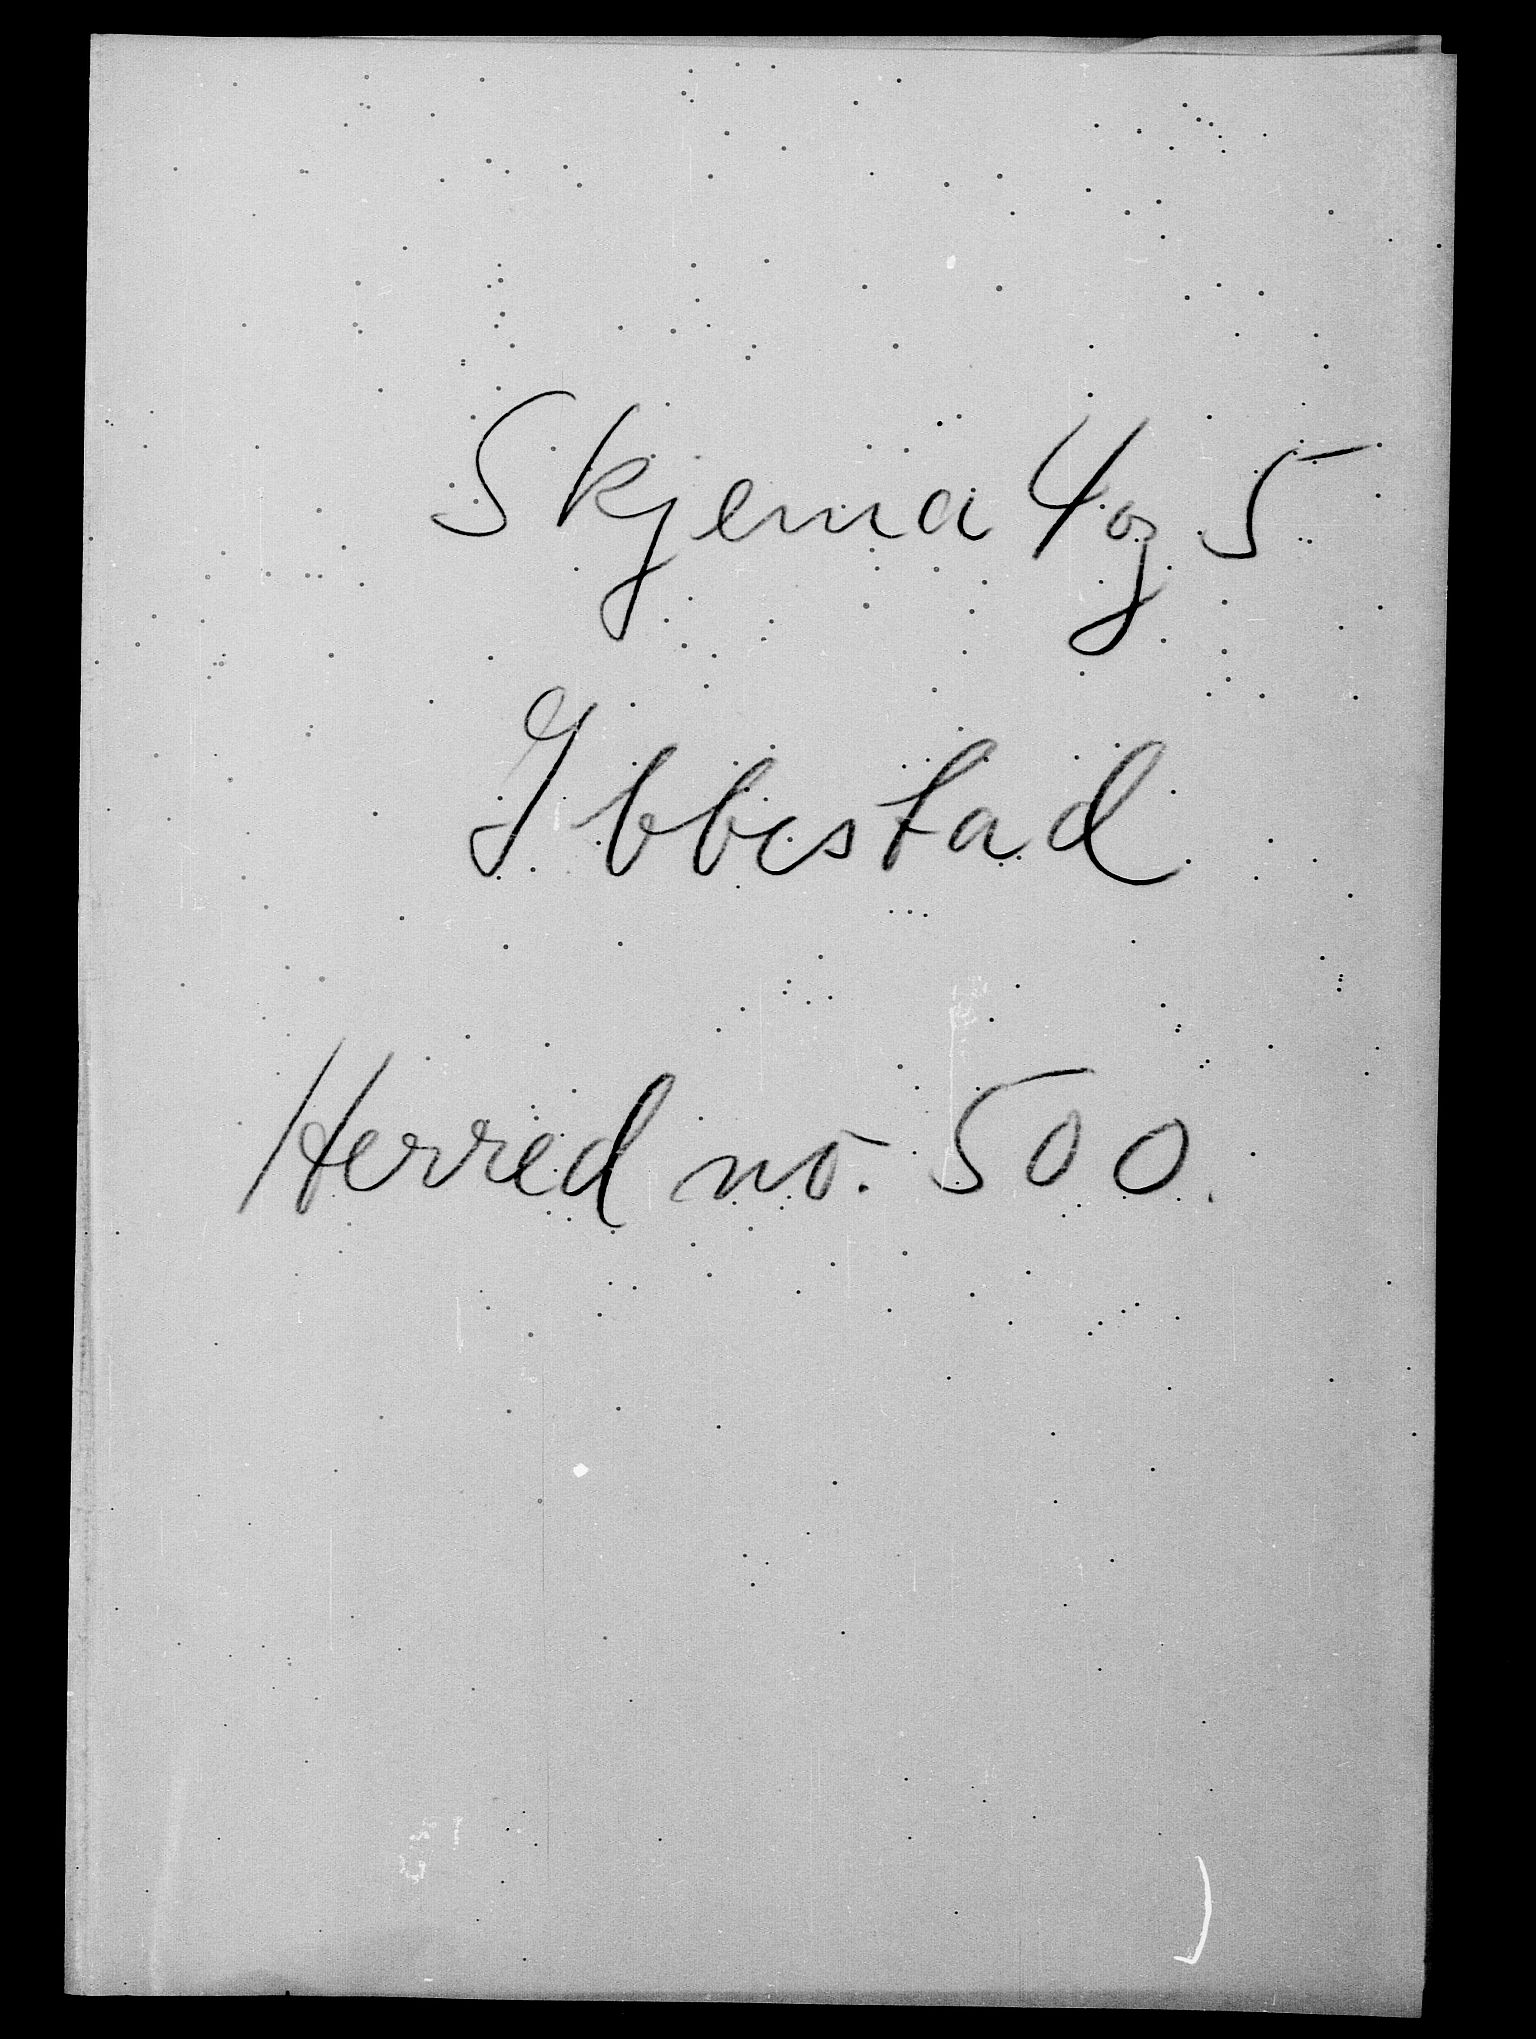 Skjema 4 og 5
Ibbestad
Herred no. 500.